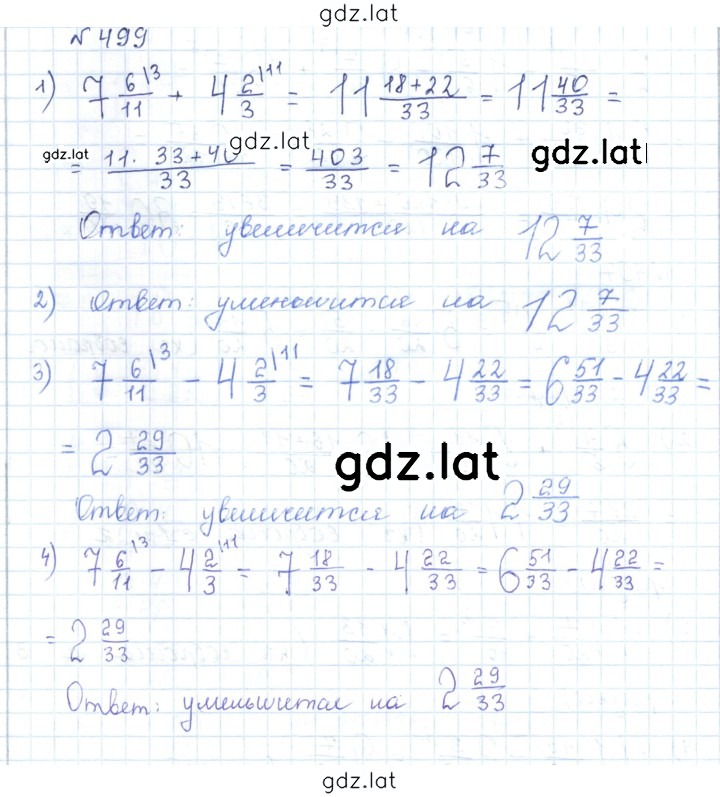 gdz.lat
№ 499
1) 7 6/11 |3 + 4 2/3 |11 = 11 18+22/33 = 11 40/33 =
gdz.lat = 11·33+40/33 gdz.lat = 403/33 = 12 7/33 gdz.lat
Ответ: увеличится на 12 7/33
2) Ответ: уменьшится на 12 7/33
3) 7 6/11 |3 - 4 2/3 |11 = 7 18/33 - 4 22/33 = 6 51/33 - 4 22/33 =
= 2 29/33 gdz.lat
Ответ: увеличится на 2 29/33
4) 7 6/11 |3 - 4 2/3 |11 = 7 18/33 - 4 22/33 = 6 51/33 - 4 22/33 =
= 2 29/33
Ответ: уменьшится на 2 29/33
gdz.lat